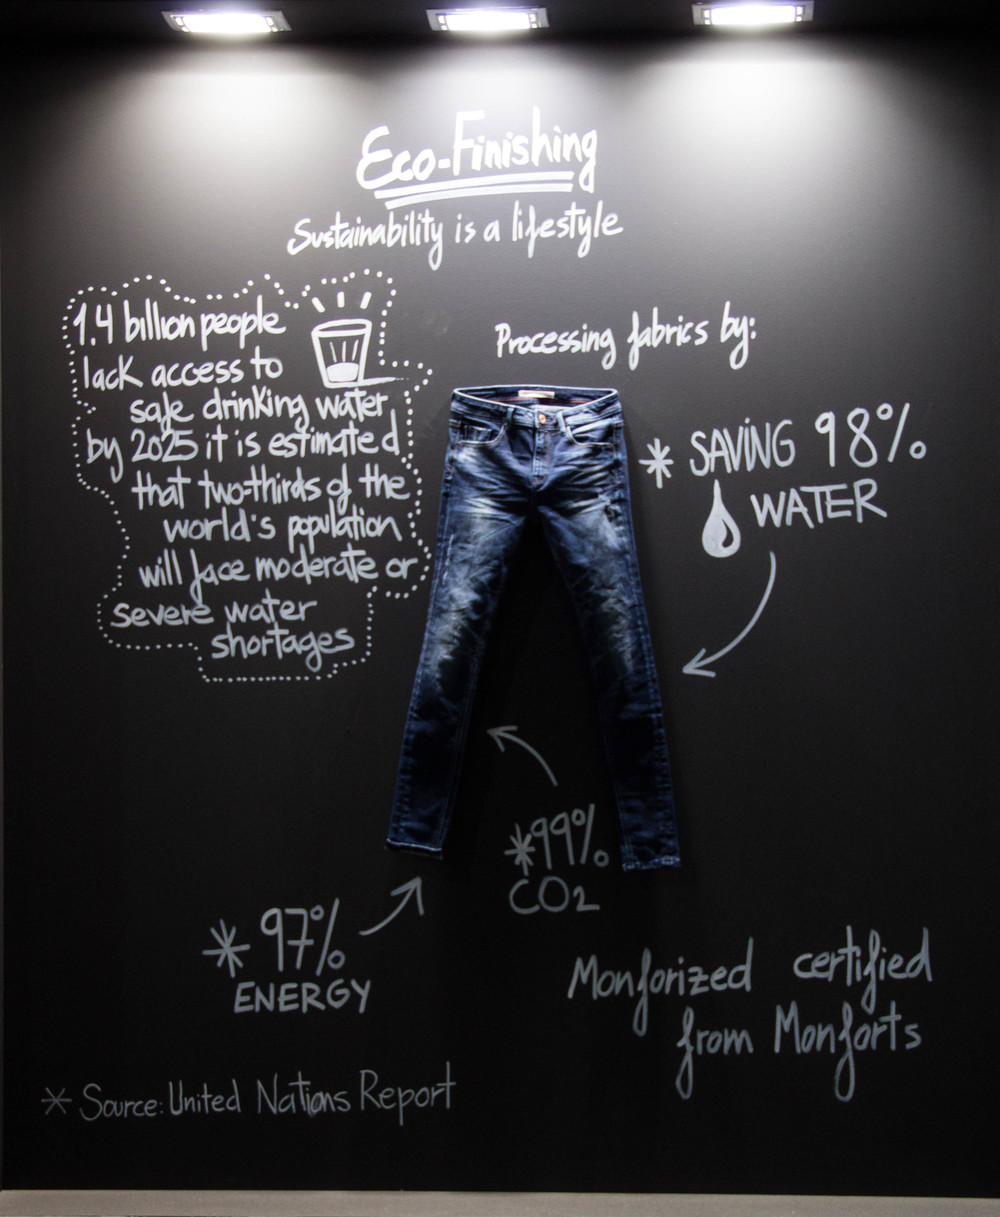 Eco-Finishing
Sustainability is a lifestyle
1.4 billion people
lack access to
safe drinking water
by 2025 it is estimated
that two-thirds of the
world's population
will face moderate or
severe water
shortages
Processing fabrics by:
* SAVING 98%
WATER
*99%
CO2
* 97%
ENERGY
Monforized certified
from Monforts
* Source: United Nations Report